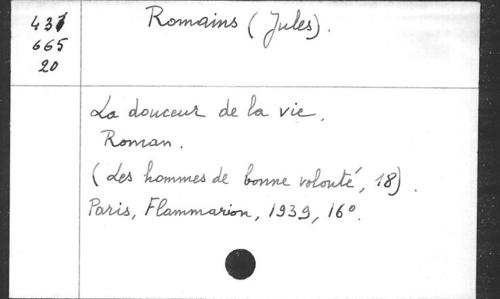 Romains (Jules).
437
665
20
La douceur de la vie.
Roman.
(Les hommes de bonne volonté, 18).
Paris, Flammarion, 1939, 16°.